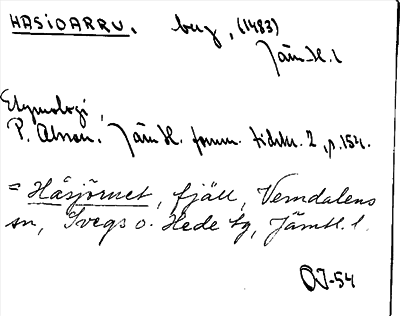 HASIOARRU. berg, (1483)
Jäm. H. l
Etymologi,
P. Alnæn. Jäm H. fornm. tidskr. 2, p. 154.
= Håsjörnet, fjäll, Vemdalens
sn, Svegs o. Hede tg, Jämtl. l.
OJ-54